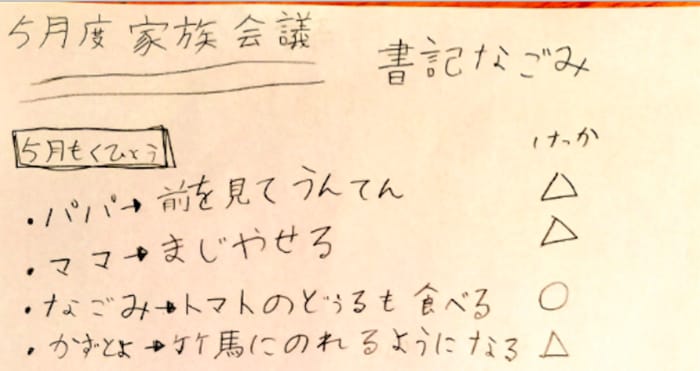 5月度 家族会議
書記なごみ
5月もくひょう
けっか
・パパ→前を見てうんてん △
・ママ→まじやせる △
・なごみ→トマトのどぅるも食べる ○
・かずとよ→竹馬にのれるようになる △